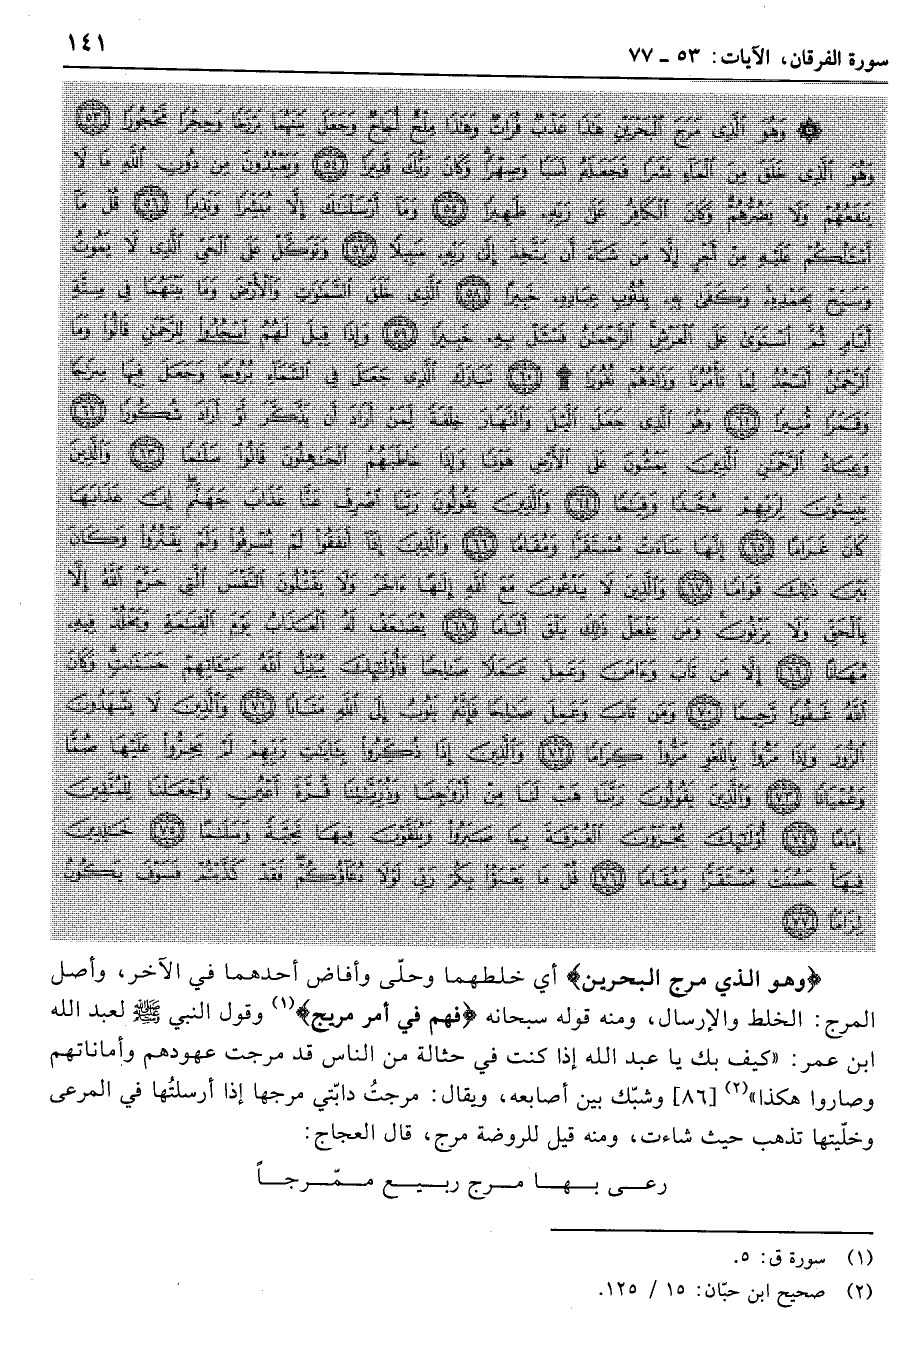 سورة الفرقان، الآيات: ٥٣ ـ ٧٧
١٤١
۞ وَهُوَ الَّذِى مَرَجَ الْبَحْرَيْنِ هَٰذَا عَذْبٌ فُرَاتٌ وَهَٰذَا مِلْحٌ أُجَاجٌ وَجَعَلَ بَيْنَهُمَا بَرْزَخًا وَحِجْرًا مَّحْجُورًا ٥٣
وَهُوَ الَّذِى خَلَقَ مِنَ الْمَاءِ بَشَرًا فَجَعَلَهُ نَسَبًا وَصِهْرًا وَكَانَ رَبُّكَ قَدِيرًا ٥٤ وَيَعْبُدُونَ مِن دُونِ اللَّهِ مَا لَا
يَنفَعُهُمْ وَلَا يَضُرُّهُمْ وَكَانَ الْكَافِرُ عَلَىٰ رَبِّهِ ظَهِيرًا ٥٥ وَمَا أَرْسَلْنَٰكَ إِلَّا مُبَشِّرًا وَنَذِيرًا ٥٦ قُلْ مَا
أَسْئَلُكُمْ عَلَيْهِ مِنْ أَجْرٍ إِلَّا مَن شَاءَ أَن يَتَّخِذَ إِلَىٰ رَبِّهِ سَبِيلًا ٥٧ وَتَوَكَّلْ عَلَى الْحَىِّ الَّذِى لَا يَمُوتُ
وَسَبِّحْ بِحَمْدِهِ وَكَفَىٰ بِهِ بِذُنُوبِ عِبَادِهِ خَبِيرًا ٥٨ الَّذِى خَلَقَ السَّمَٰوَٰتِ وَالْأَرْضَ وَمَا بَيْنَهُمَا فِى سِتَّةِ
أَيَّامٍ ثُمَّ اسْتَوَىٰ عَلَى الْعَرْشِ الرَّحْمَٰنُ فَسْئَلْ بِهِ خَبِيرًا ٥٩ وَإِذَا قِيلَ لَهُمُ اسْجُدُوا لِلرَّحْمَٰنِ قَالُوا وَمَا
الرَّحْمَٰنُ أَنَسْجُدُ لِمَا تَأْمُرُنَا وَزَادَهُمْ نُفُورًا ۩ ٦٠ تَبَارَكَ الَّذِى جَعَلَ فِى السَّمَاءِ بُرُوجًا وَجَعَلَ فِيهَا سِرَٰجًا
وَقَمَرًا مُّنِيرًا ٦١ وَهُوَ الَّذِى جَعَلَ الَّيْلَ وَالنَّهَارَ خِلْفَةً لِّمَنْ أَرَادَ أَن يَذَّكَّرَ أَوْ أَرَادَ شُكُورًا ٦٢
وَعِبَادُ الرَّحْمَٰنِ الَّذِينَ يَمْشُونَ عَلَى الْأَرْضِ هَوْنًا وَإِذَا خَاطَبَهُمُ الْجَٰهِلُونَ قَالُوا سَلَٰمًا ٦٣ وَالَّذِينَ
يَبِيتُونَ لِرَبِّهِمْ سُجَّدًا وَقِيَٰمًا ٦٤ وَالَّذِينَ يَقُولُونَ رَبَّنَا اصْرِفْ عَنَّا عَذَابَ جَهَنَّمَ إِنَّ عَذَابَهَا
كَانَ غَرَامًا ٦٥ إِنَّهَا سَاءَتْ مُسْتَقَرًّا وَمُقَامًا ٦٦ وَالَّذِينَ إِذَا أَنفَقُوا لَمْ يُسْرِفُوا وَلَمْ يَقْتُرُوا وَكَانَ
بَيْنَ ذَٰلِكَ قَوَامًا ٦٧ وَالَّذِينَ لَا يَدْعُونَ مَعَ اللَّهِ إِلَٰهًا ءَاخَرَ وَلَا يَقْتُلُونَ النَّفْسَ الَّتِى حَرَّمَ اللَّهُ إِلَّا
بِالْحَقِّ وَلَا يَزْنُونَ وَمَن يَفْعَلْ ذَٰلِكَ يَلْقَ أَثَامًا ٦٨ يُضَٰعَفْ لَهُ الْعَذَابُ يَوْمَ الْقِيَٰمَةِ وَيَخْلُدْ فِيهِ
مُهَانًا ٦٩ إِلَّا مَن تَابَ وَءَامَنَ وَعَمِلَ عَمَلًا صَٰلِحًا فَأُولَٰئِكَ يُبَدِّلُ اللَّهُ سَيِّئَاتِهِمْ حَسَنَٰتٍ وَكَانَ
اللَّهُ غَفُورًا رَّحِيمًا ٧٠ وَمَن تَابَ وَعَمِلَ صَٰلِحًا فَإِنَّهُ يَتُوبُ إِلَى اللَّهِ مَتَابًا ٧١ وَالَّذِينَ لَا يَشْهَدُونَ
الزُّورَ وَإِذَا مَرُّوا بِاللَّغْوِ مَرُّوا كِرَامًا ٧٢ وَالَّذِينَ إِذَا ذُكِّرُوا بِـَٔايَٰتِ رَبِّهِمْ لَمْ يَخِرُّوا عَلَيْهَا صُمًّا
وَعُمْيَانًا ٧٣ وَالَّذِينَ يَقُولُونَ رَبَّنَا هَبْ لَنَا مِنْ أَزْوَٰجِنَا وَذُرِّيَّٰتِنَا قُرَّةَ أَعْيُنٍ وَاجْعَلْنَا لِلْمُتَّقِينَ
إِمَامًا ٧٤ أُولَٰئِكَ يُجْزَوْنَ الْغُرْفَةَ بِمَا صَبَرُوا وَيُلَقَّوْنَ فِيهَا تَحِيَّةً وَسَلَٰمًا ٧٥ خَٰلِدِينَ
فِيهَا حَسُنَتْ مُسْتَقَرًّا وَمُقَامًا ٧٦ قُلْ مَا يَعْبَؤُا بِكُمْ رَبِّى لَوْلَا دُعَاؤُكُمْ فَقَدْ كَذَّبْتُمْ فَسَوْفَ يَكُونُ
لِزَامًا ٧٧
﴿وهو الذي مرج البحرين﴾ أي خلطهما وحلّى وأفاض أحدهما في الآخر، وأصل
المرج: الخلط والإرسال، ومنه قوله سبحانه ﴿فهم في أمر مريج﴾(١) وقول النبي ﷺ لعبد الله
ابن عمر: «كيف بك يا عبد الله إذا كنت في حثالة من الناس قد مرجت عهودهم وأماناتهم
وصاروا هكذا»(٢) [٨٦] وشبّك بين أصابعه، ويقال: مرجتُ دابّتي مرجها إذا أرسلتُها في المرعى
وخلّيتها تذهب حيث شاءت، ومنه قيل للروضة مرج، قال العجاج:
رعى بها مرج ربيع ممّرجاً
(١) سورة ق: ٥.
(٢) صحيح ابن حبّان: ١٥ / ١٢٥.